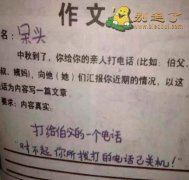 别逗了
作文
名:呆头
中秋到了,你给你的亲人打电话(比如、伯父、
叔、姨妈,向他(她)们汇报你近期的情况,以这
话为内容写一篇文章
要求:内容真实
打给伯父的一个电话
"对不起,你所拨打的电话已关机!"